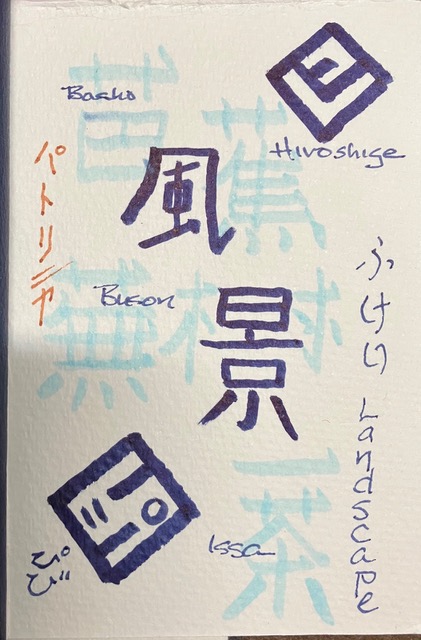 Basho
芭蕉
Hiroshige
パトリシヤ
風景
Buson
蕪村
ふけい Landscape
一茶
Issa